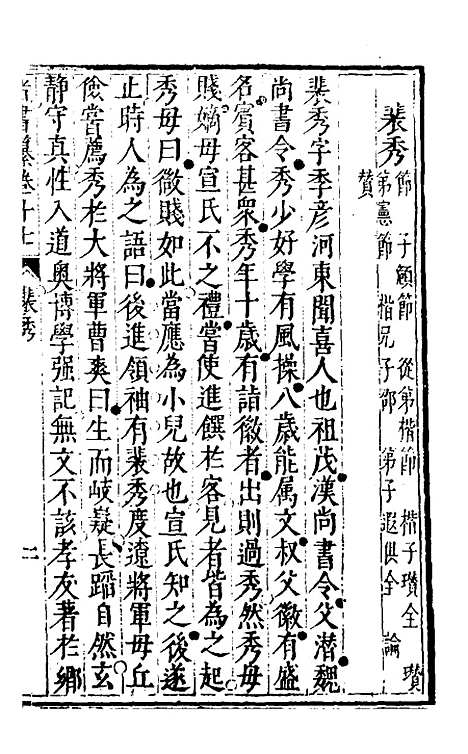 裴秀節 子頠節 從弟楷節 楷子瓚全 瓚
弟憲節 楷兄子郃 弟子遐俱全 論
贊
裴秀字季彥河東聞喜人也祖茂漢尚書令父潛魏
尚書令秀少好學有風操八歲能属文叔父徽有盛
名賔客甚衆秀年十歲有詣徽者出則過秀然秀毋
賤嫡毋宣氏不之禮嘗使進饌於客見者皆為之起
秀毋曰微賤如此當應為小兒故也宣氏知之後遂
止時人為之語曰後進領袖有裴秀度遼將軍毋丘
儉嘗薦秀於大將軍曹爽曰生而岐嶷長蹈自然玄
静守真性入道奧博學强記無文不該孝友著於鄉
裴秀
二